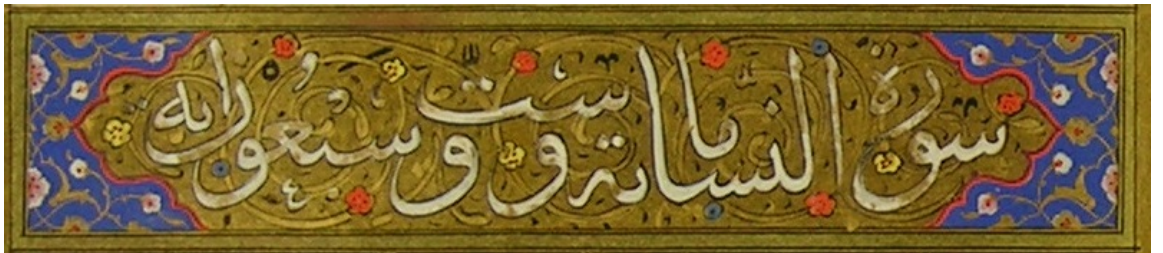 سورة النسا مایة و ست و سبعون ایه